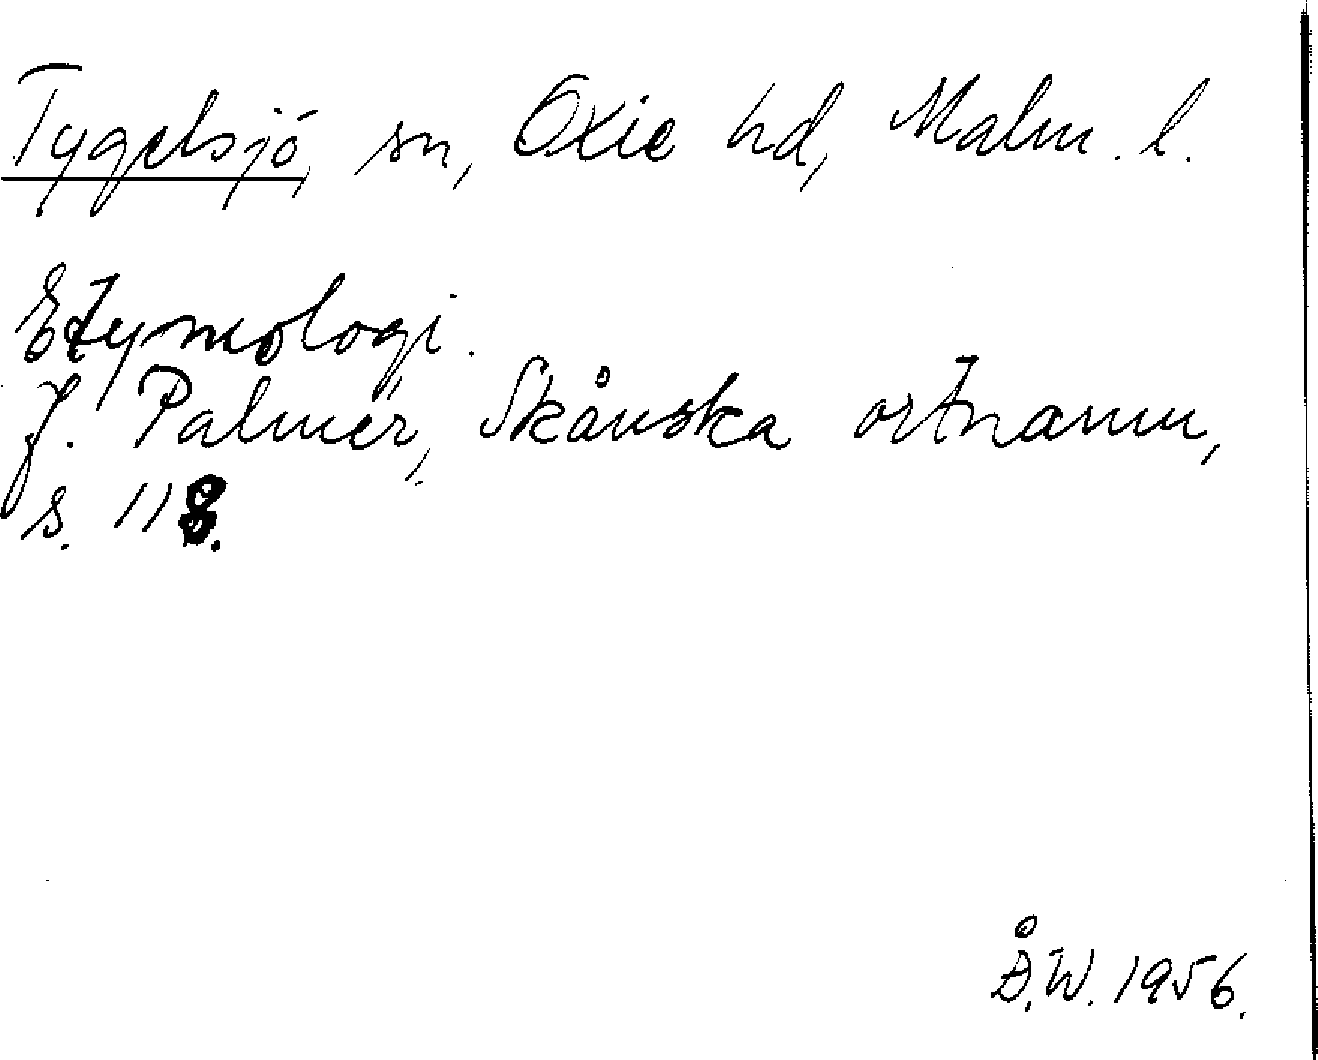 Tygelsjö, sn, Oxie hd, Malm. l.
Etymologi.
J. Palmér, Skånska ortnamn,
s. 118.
Å.W. 1956.